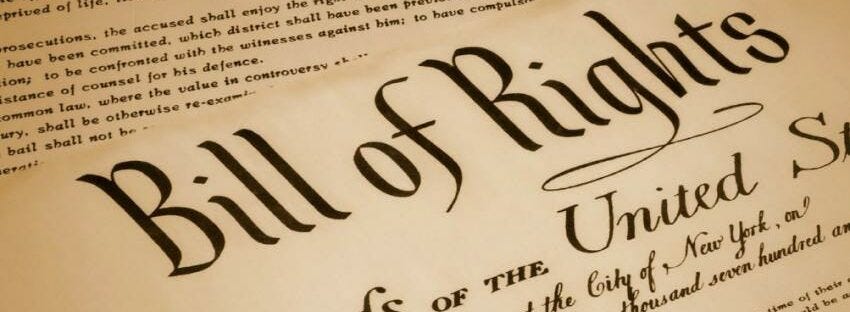 prived of life,
prosecutions, the accused shall enjoy the
have been committed, which district shall have been
tion; to be confronted with the witnesses against him; to have
istance of counsel for his defence.
ommon law, where the value in controversy
ury, shall be otherwise
bail shall not be
Bill of Rights
OF THE United
the City of New York, on
thousand seven hundred
time of their